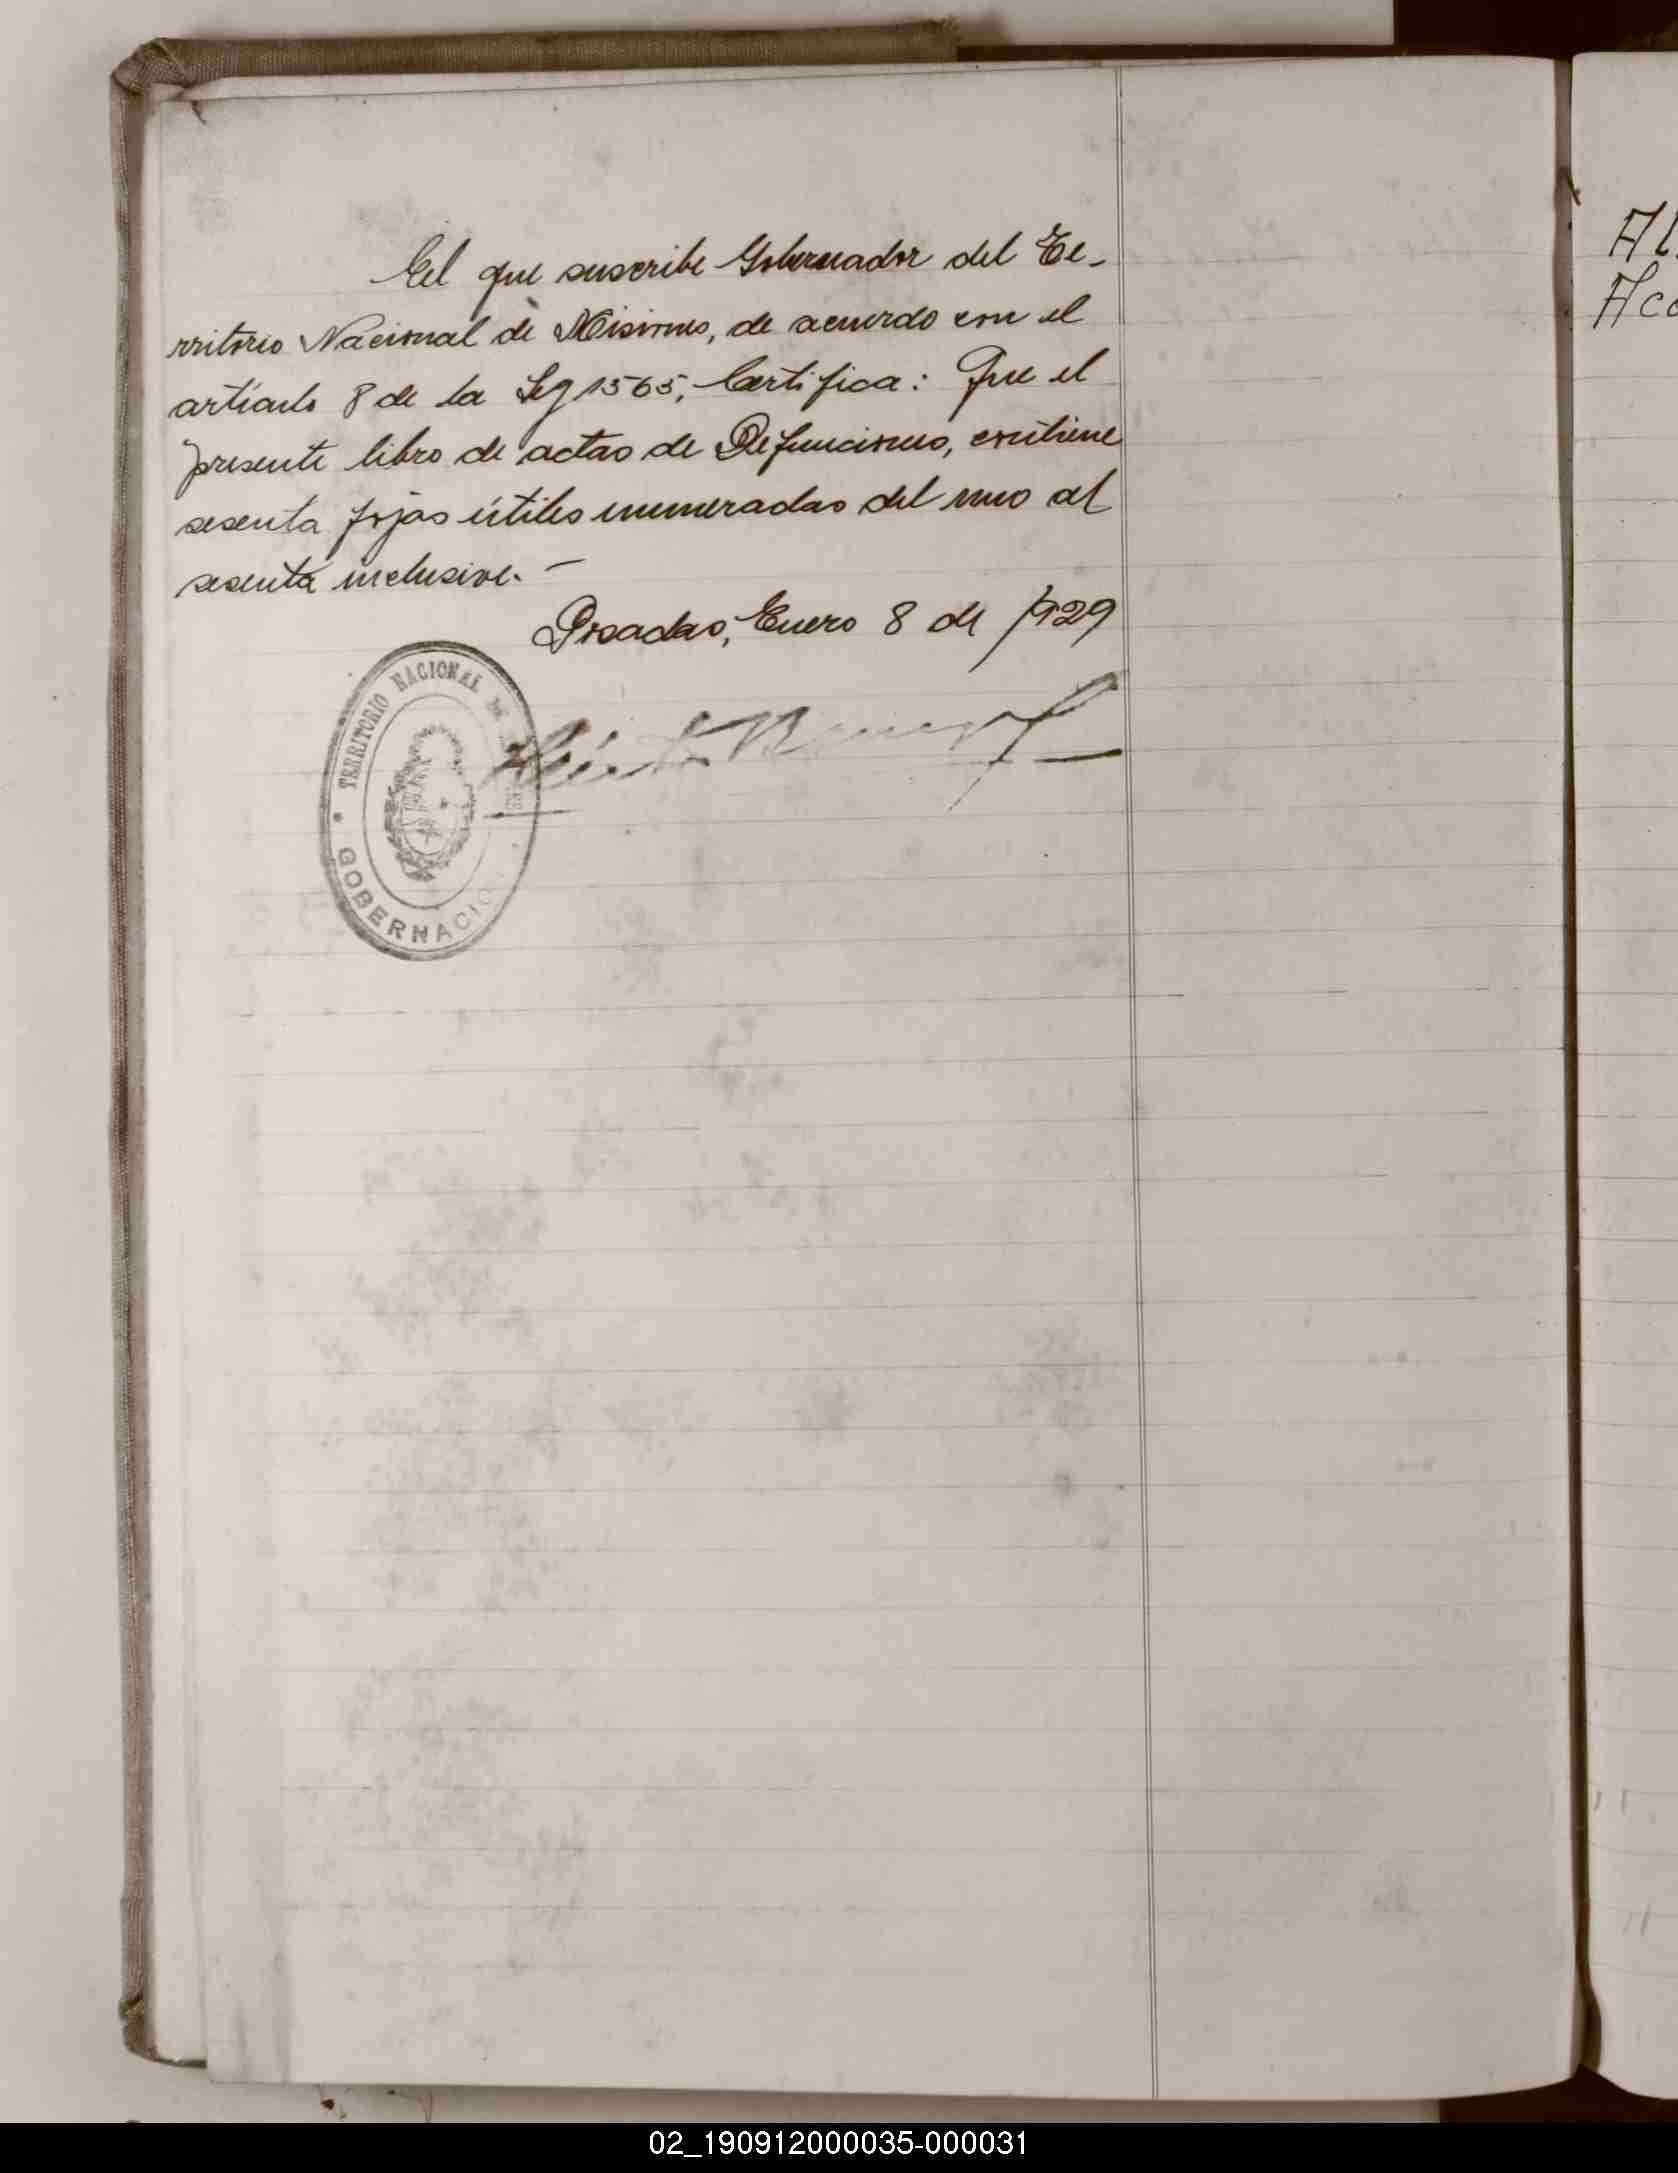 El que suscribe Gobernador del Te-
rritorio Nacional de Misiones, de acuerdo con el
artículo 8 de la Ley 1565, Certifica: Que el
presente libro de actas de Defunciones, contiene
sesenta fojas útiles enumeradas del uno al
sesenta inclusive. —
Posadas, Enero 8 de 1929
TERRITORIO NACIONAL DE
GOBERNACIO
02_190912000035-000031